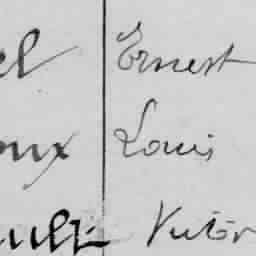 el Ernest
oux Louis
ault Victor